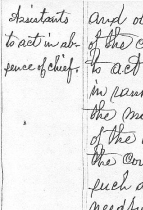 Assistants
to act in ab-
sence of chief.
and o
of the c
to act
in
the m
of the
the Cou
such a
needful